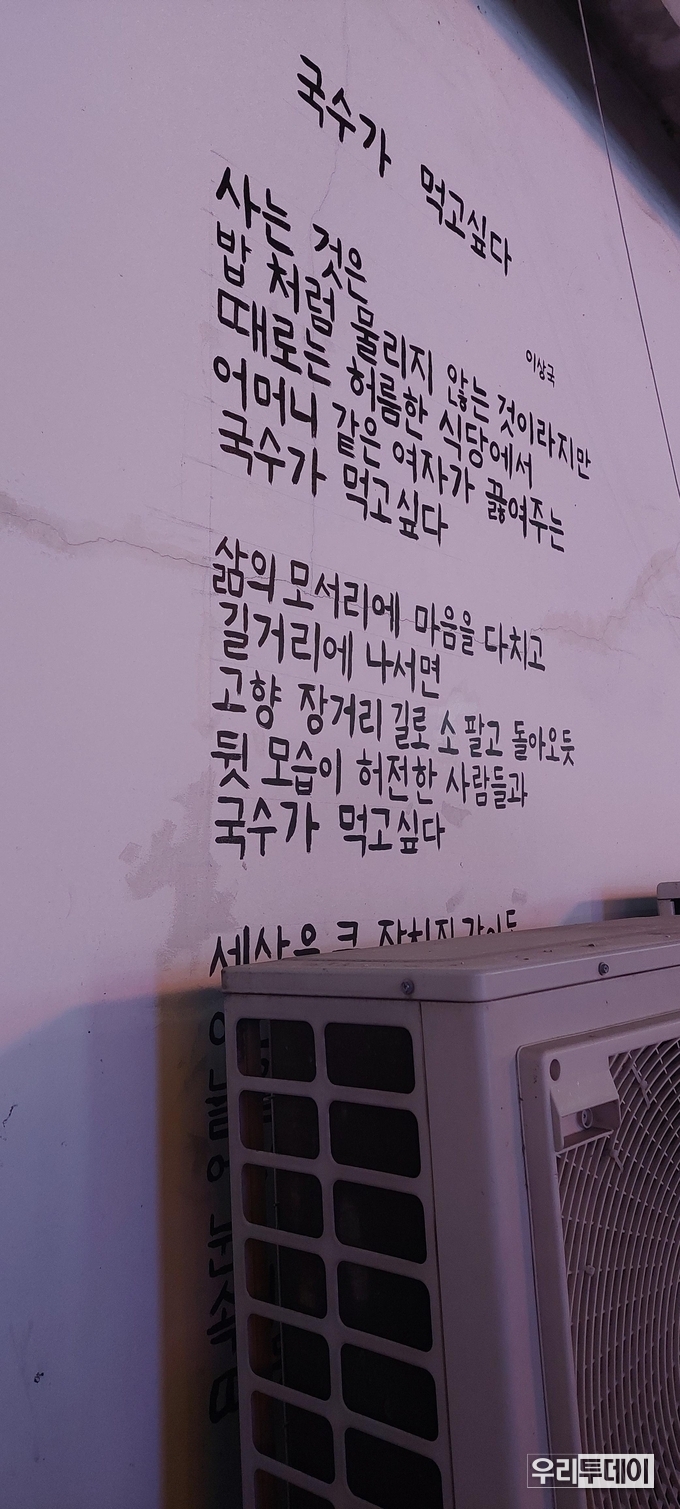 국수가 먹고싶다
이상국
사는 것은
밥 처럼 물리지 않는 것이라지만
때로는 허름한 식당에서
어머니 같은 여자가 끓여주는
국수가 먹고싶다
삶의 모서리에 마음을 다치고
길거리에 나서면
고향 장거리 길로 소 팔고 돌아오듯
뒷 모습이 허전한 사람들과
국수가 먹고싶다
세상은 큰
우리투데이